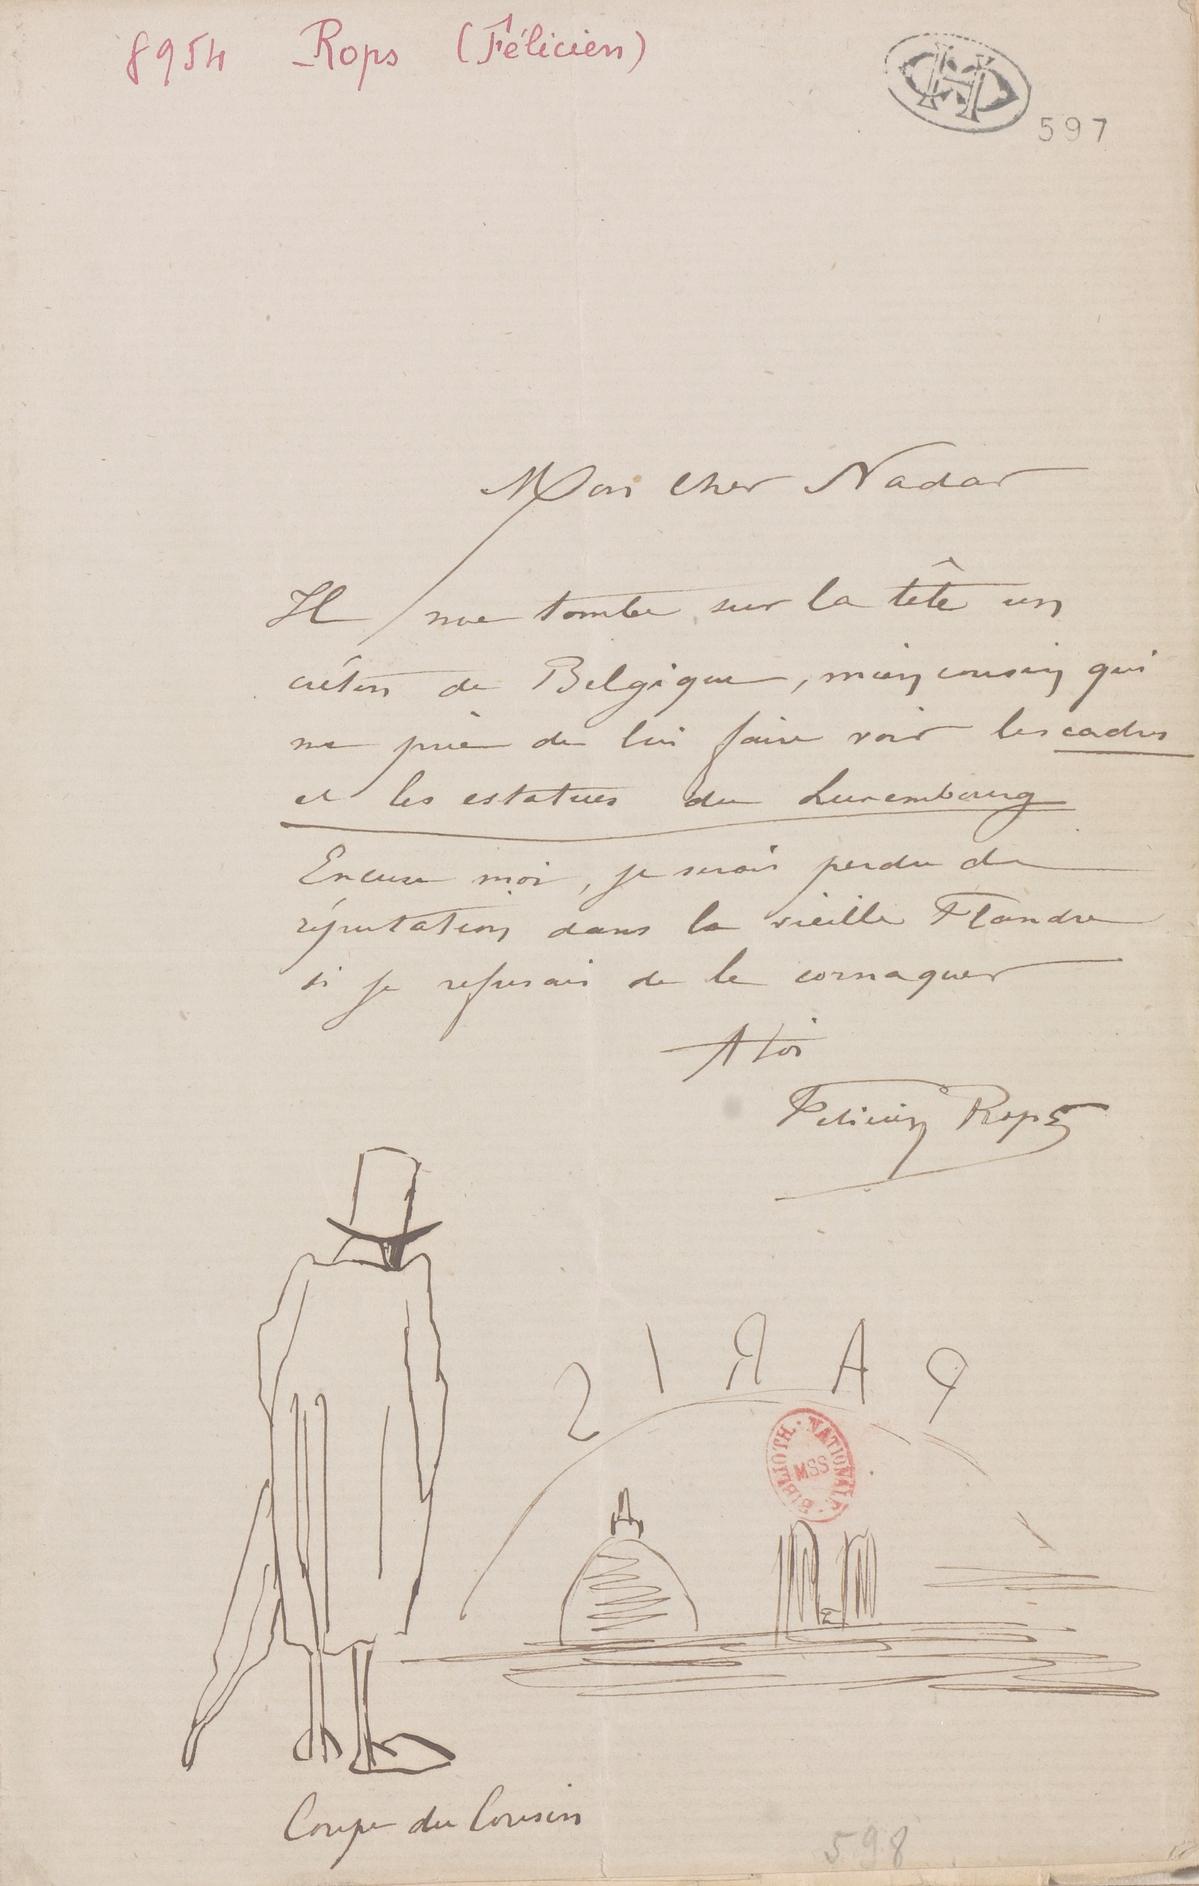 8954 Rops (Félicien)
597
Mon cher Nadar
Il me tombe sur la tête un
crétin de Belgique, mien cousin qui
me prie de lui faire voir les cadres
et les estatues du Luxembourg
Excuse moi, je serais perdu de
réputation dans la vieille Flandre
si je refusais de le cornaquer
A toi
Félicien Rops
PARIS
BIBLIOTH. NATIONALE
MSS
Coupe du Cousin
598